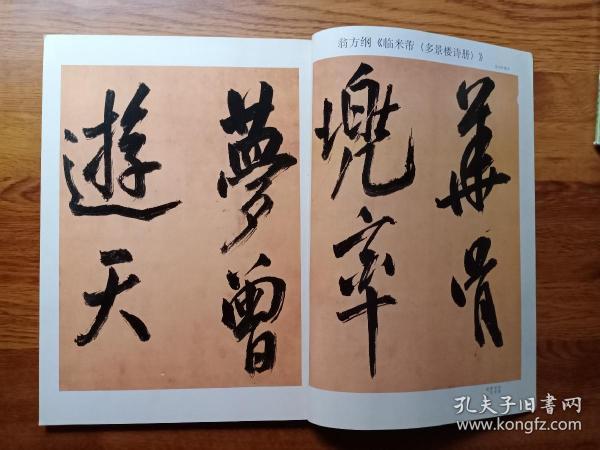 翁方纲《临米芾〈多景楼诗册〉》
華胥
兜率
夢曾
遊天
孔夫子旧書网
www.kongfz.com